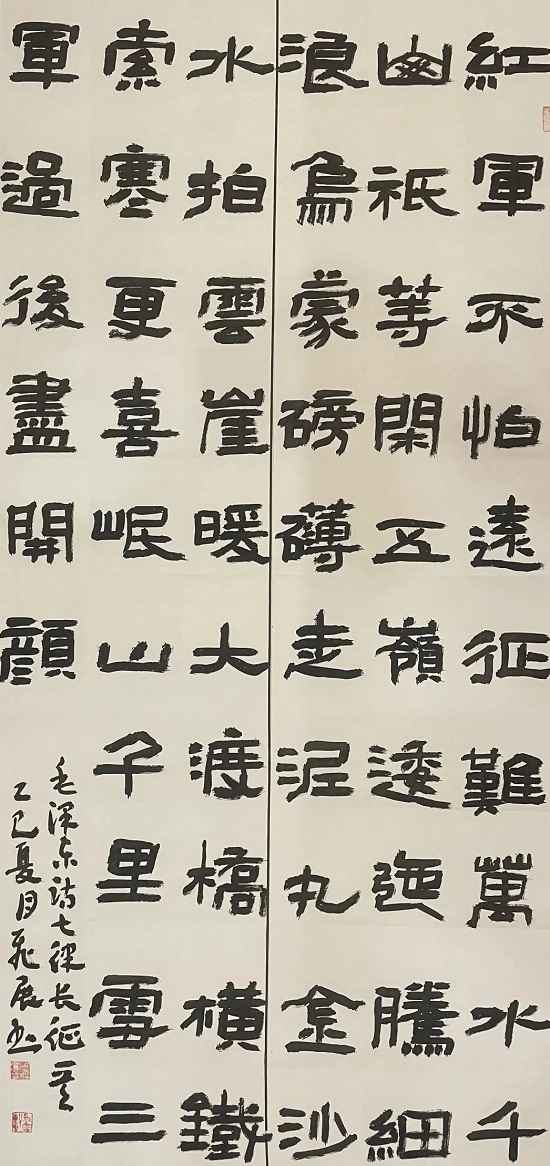 紅軍不怕遠征難萬水千
山祇等閑五嶺逶迤騰細
浪烏蒙磅礴走泥丸金沙
水拍雲崖暖大渡橋橫鐵
索寒更喜岷山千里雪三
軍過後盡開顏
毛澤东詩七律长征一首
乙巳夏月飛展书